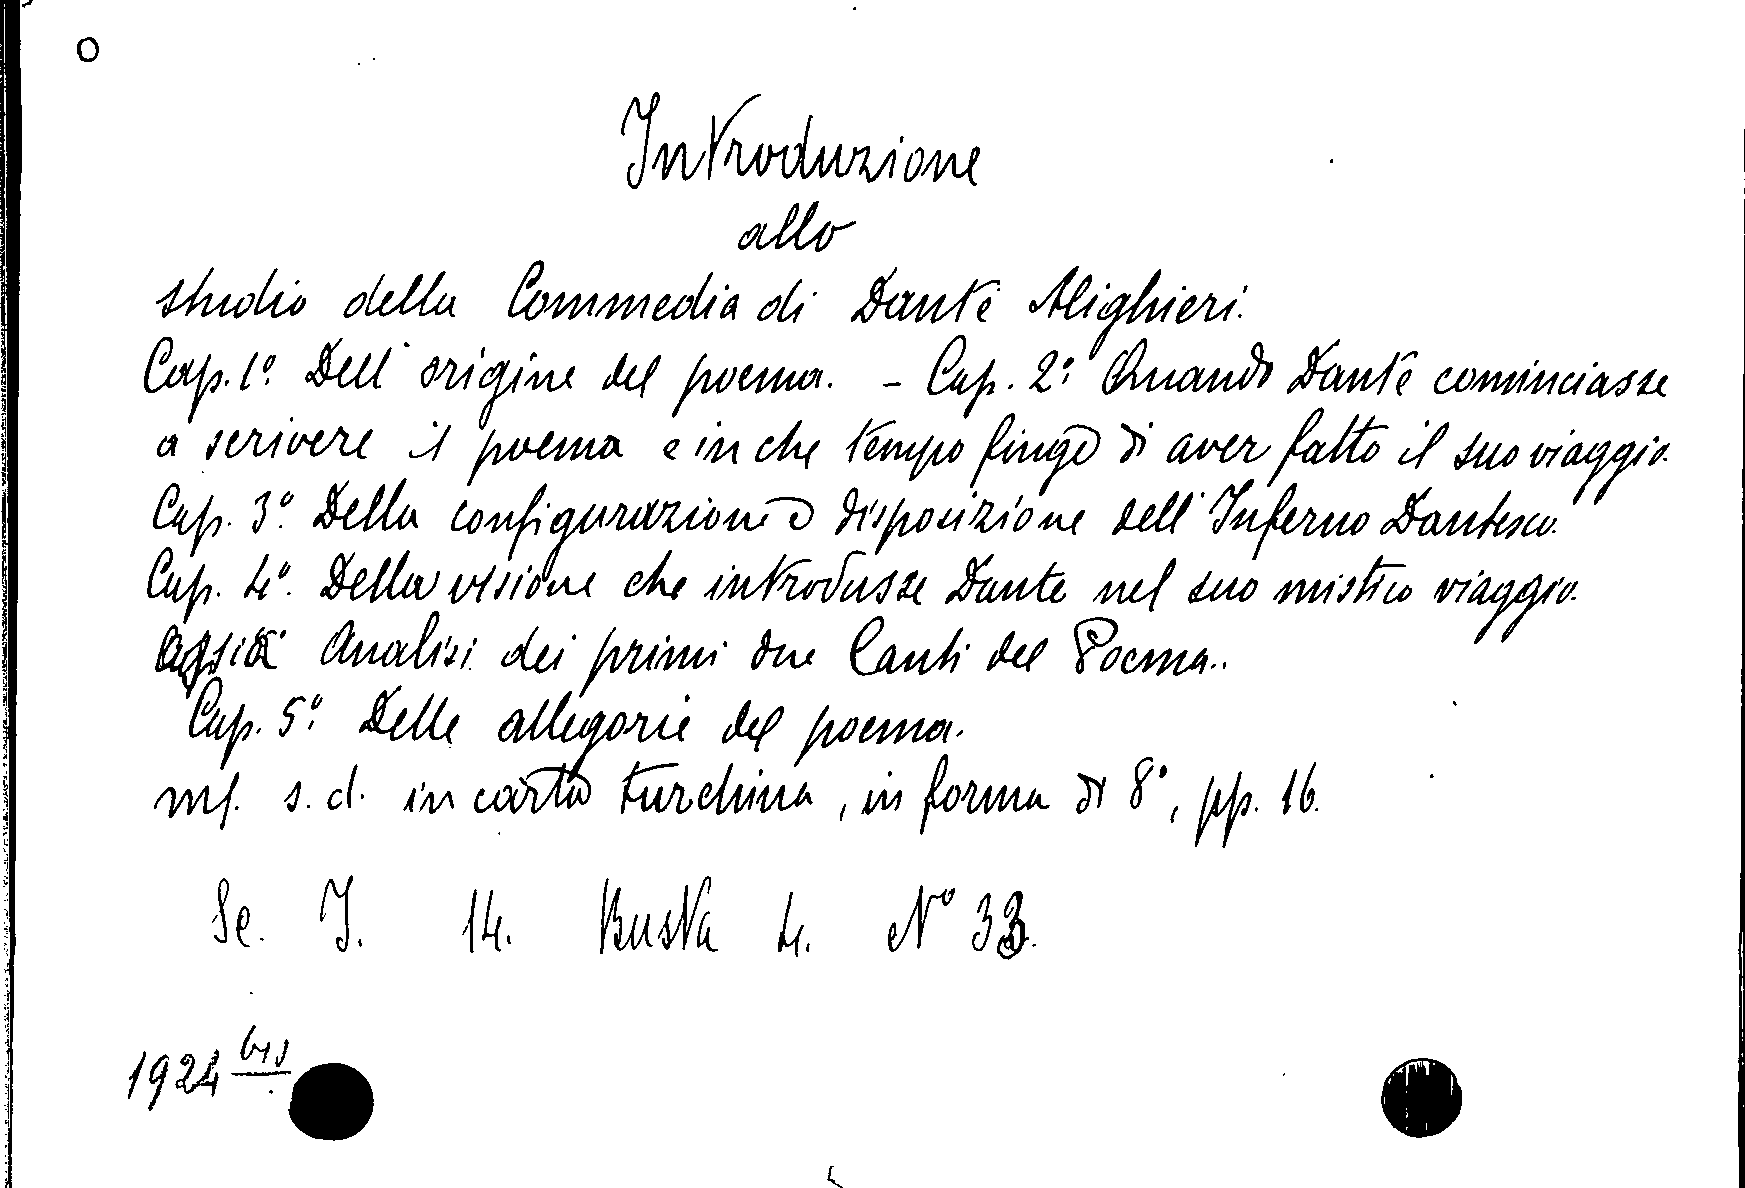 Introduzione
allo
studio della Commedia di Dante Alighieri.
Cap. 1º. Dell'origine del poema. - Cap. 2º: Quando Dante cominciasse
a scrivere il poema e in che tempo finge di aver fatto il suo viaggio.
Cap. 3º. Della configurazione e disposizione dell'Inferno Dantesco.
Cap. 4º. Della visione che introdusse Dante nel suo mistico viaggio.
Analisi dei primi due Canti del Poema.
Cap. 5º: Delle allegorie del poema.
ms. s.d. in carta turchina, in forma di 8º, pp. 16.
Sc. I. 14. Busta 4. Nº 33.
1924 bis